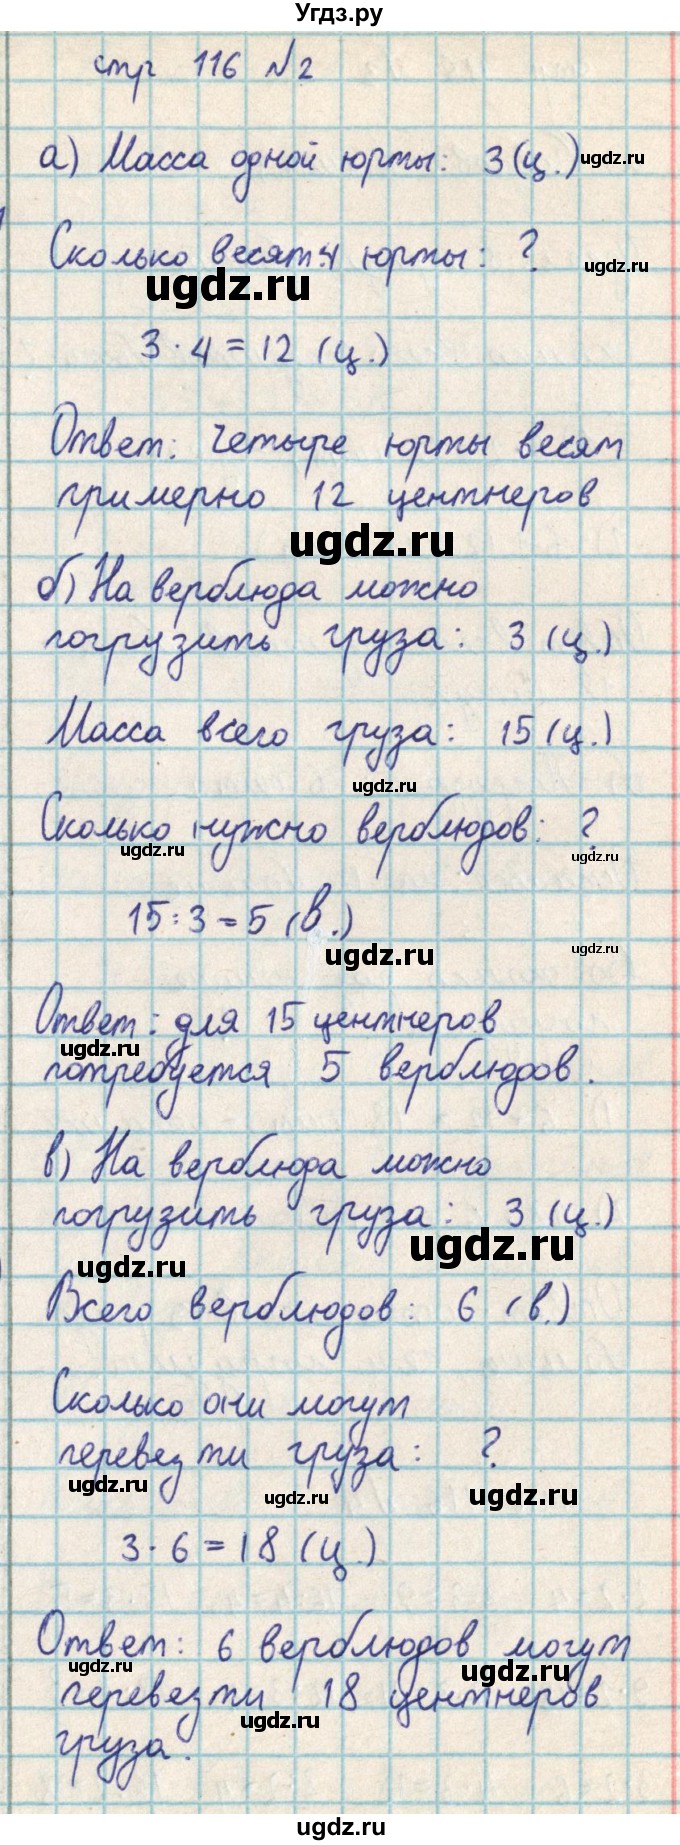 Угдз.ру
стр 116 №2
а) Масса одной юрты: 3 (ц.)
ugdz.ru
Сколько весят 4 юрты: ?
ugdz.ru
ugdz.ru
3 · 4 = 12 (ц.)
Ответ: четыре юрты весят
примерно 12 центнеров
ugdz.ru
б) На верблюда можно
погрузить груза: 3 (ц.)
Масса всего груза: 15 (ц.)
ugdz.ru
Сколько нужно верблюдов: ?
ugdz.ru
ugdz.ru
15 : 3 = 5 (в.)
ugdz.ru
ugdz.ru
Ответ: для 15 центнеров
ugdz.ru
потребуется 5 верблюдов.
в) На верблюда можно
погрузить груза: 3 (ц.)
ugdz.ru
ugdz.ru
Всего верблюдов: 6 (в.)
Сколько они могут
перевезти груза: ?
ugdz.ru
ugdz.ru
ugdz.ru
3 · 6 = 18 (ц.)
Ответ: 6 верблюдов могут
ugdz.ru
ugdz.ru
перевезти 18 центнеров
ugdz.ru
груза.
ugdz.ru